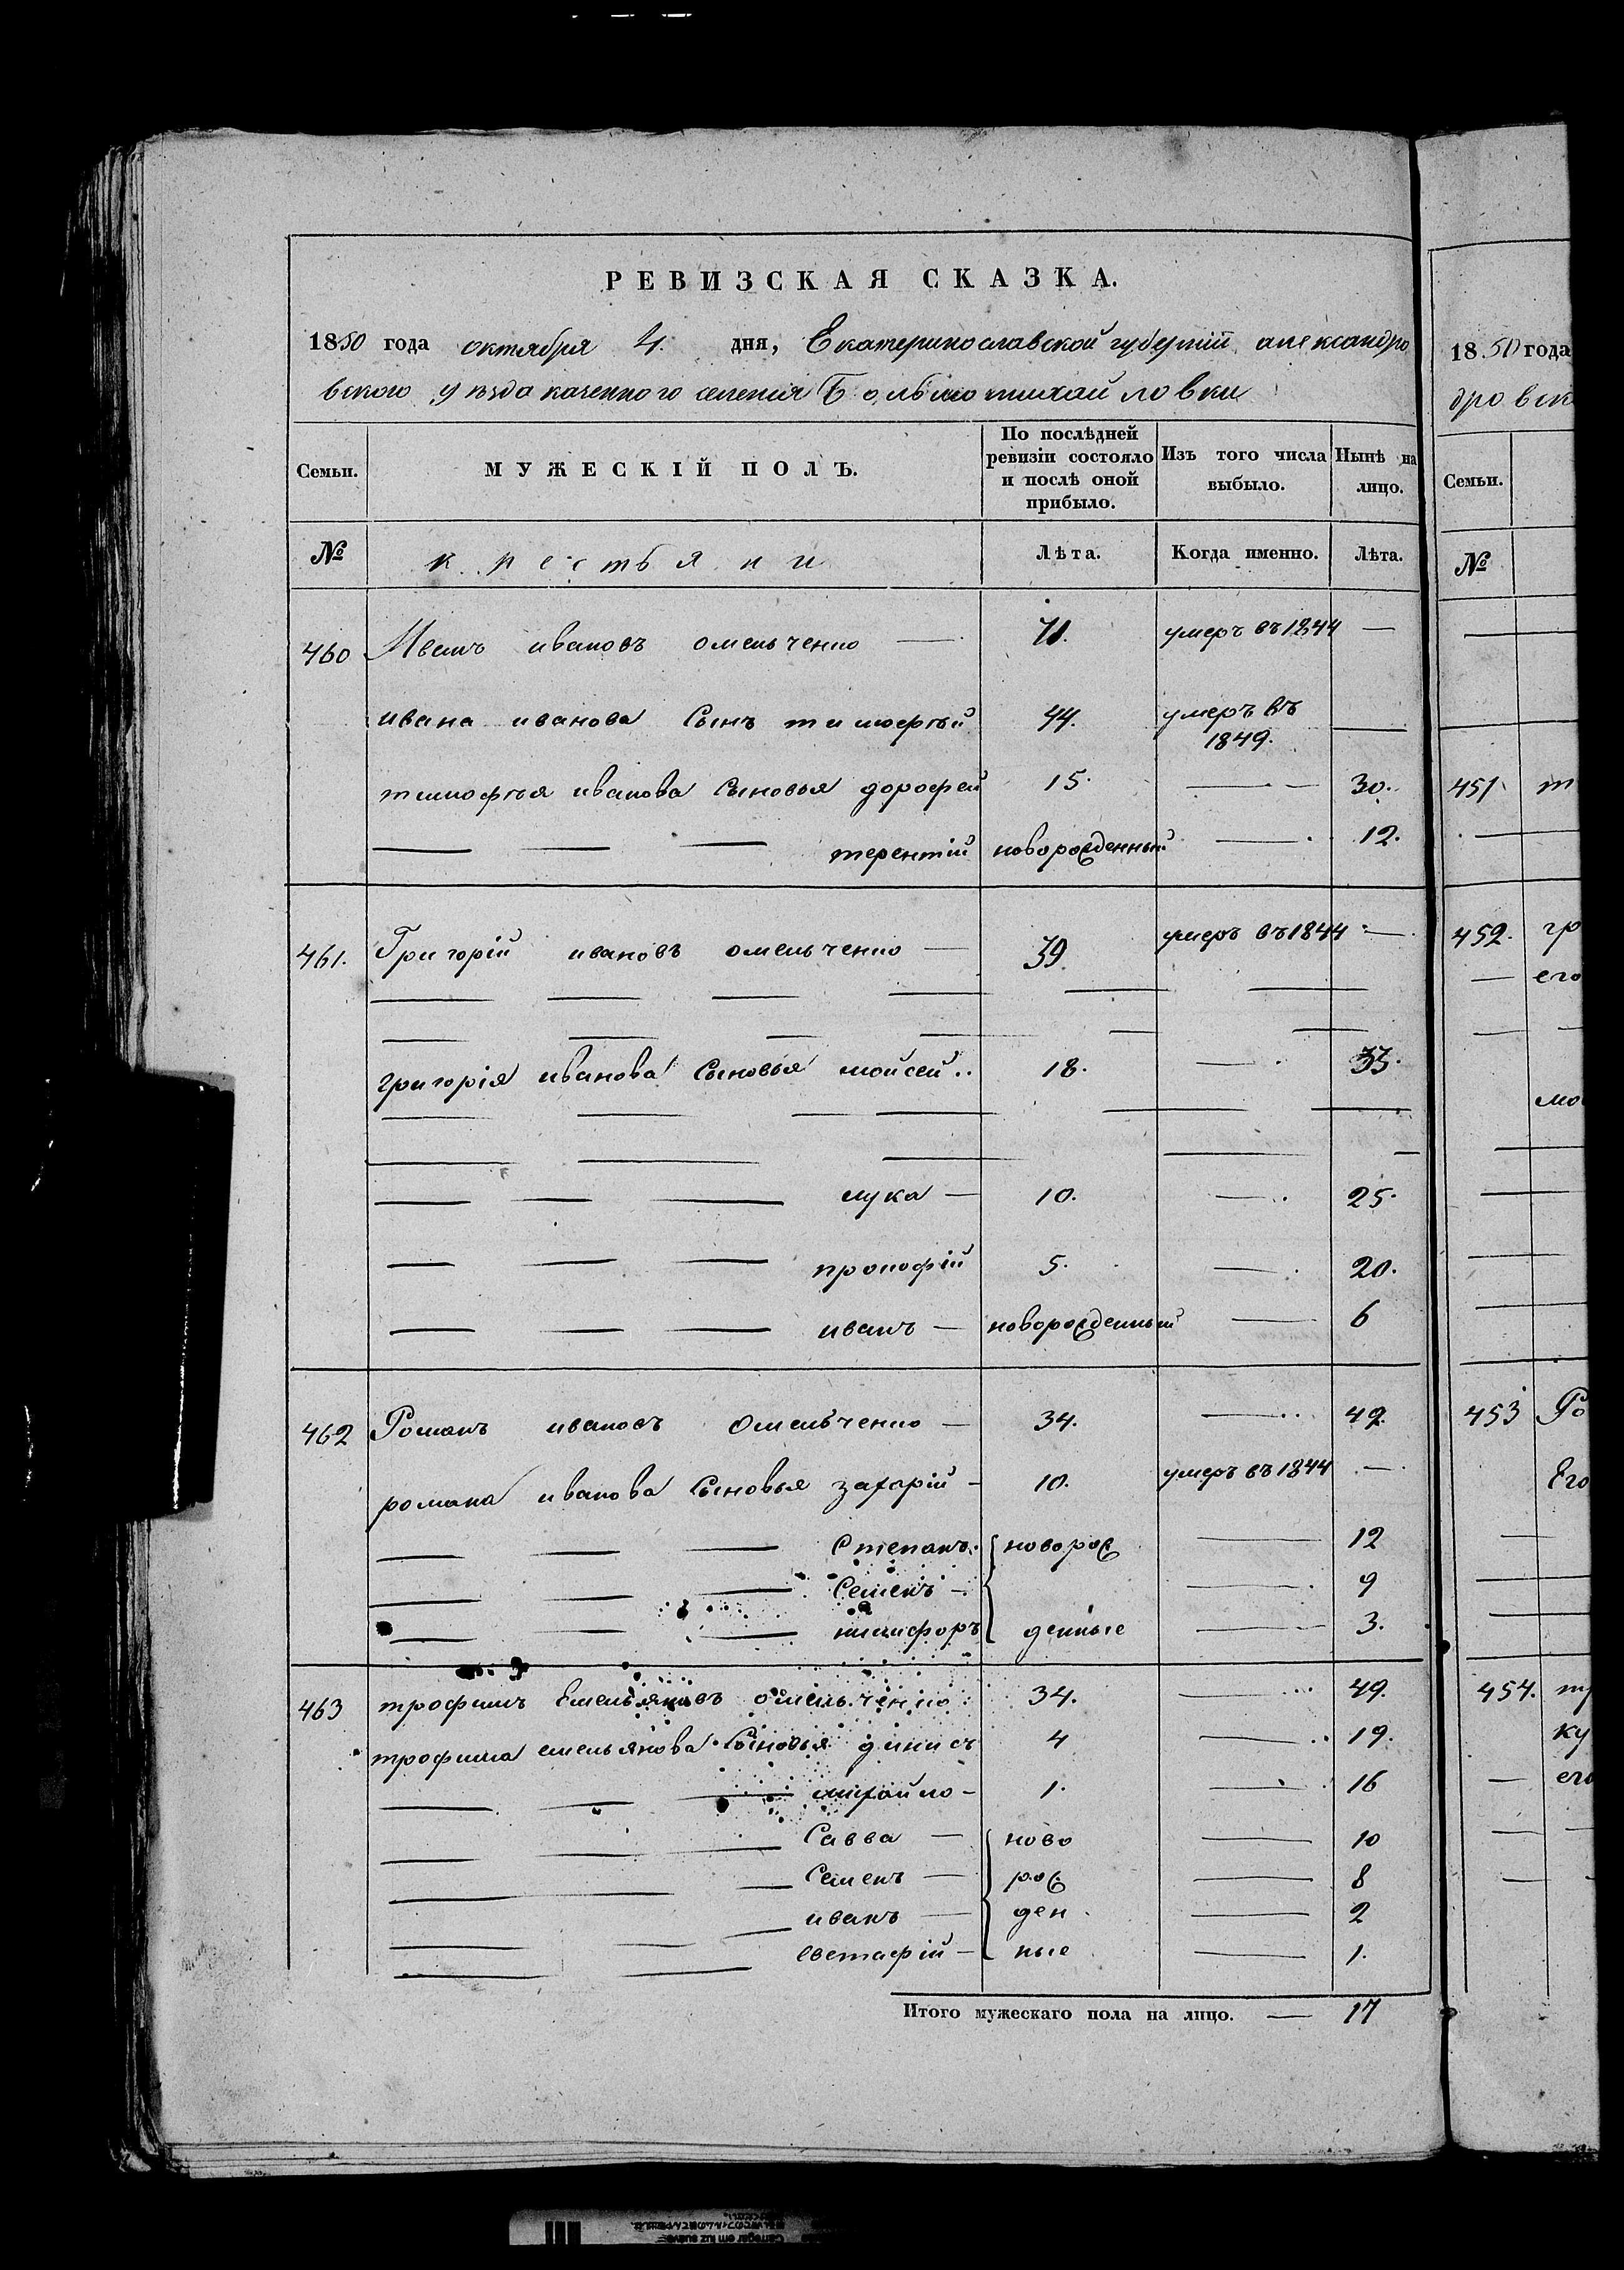 РЕВИЗСКАЯ СКАЗКА.
1850 года октября 4. дня, Екатеринославской губернии александро
вского уѣзда казенного селения Большомихайловки
Семьи.
МУЖЕСКІЙ ПОЛЪ.
По послѣдней ревизіи состояло и послѣ оной прибыло.
Изъ того числа выбыло.
Нынѣ на лицо.
№
крестьяни
Лѣта.
Когда именно.
Лѣта.
460 Иванъ ивановъ омельченко — 71. умеръ въ 1844 —
ивана иванова Сынъ тимофѣй 44. умеръ въ 1849. —
тимофѣя иванова Сыновья дорофей 15. — 30.
— — — терентій новорожденный — 12.
461. Григорій ивановъ омельченко — 39. умеръ въ 1844 —
григорія иванова Сыновья мойсей.. 18. — 33.
— — — лука — 10. — 25.
— — — прокофій 5. — 20.
— — — иванъ — новорожденный — 6
462 Романъ ивановъ Омельченко — 34. — 49.
романа иванова Сыновья захарій — 10. умеръ въ 1844 —
— — — Степанъ новорож — 12
— — — Семенъ — — 9
— — — никифоръ денные — 3.
463 трофимъ Емельяновъ омельченко 34. — 49.
трофима емельянова Сыновья динисъ 4 — 19.
— — — михайло — 1. — 16
— — — Савва — ново — 10
— — — Семенъ — рож — 8
— — — иванъ — ден — 2
— — — евстафій — ные — 1.
Итого мужескаго пола на лицо. — 17
18 50 года
дровск
Семьи.
№
451 т
452. гр
его
мо
453 Ро
Его
454. тр
ку
его